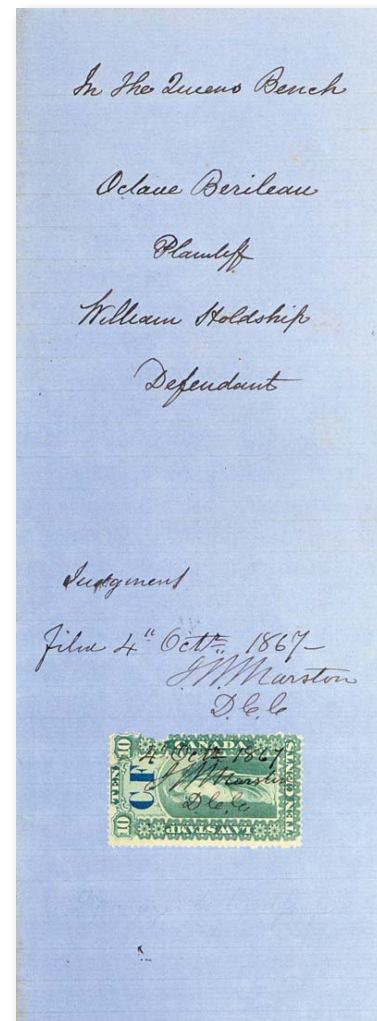 In The Queens Bench
Octave Berileau
Plaintiff
William Holdship
Defendant
Judgment
filed 4" Octr. 1867-
J W Marston
D.C.C
TEN 10 CANADA TEN CENTS
CF
4" Octr 1867
J W Marston
D.C.C
10 LAW STAMP